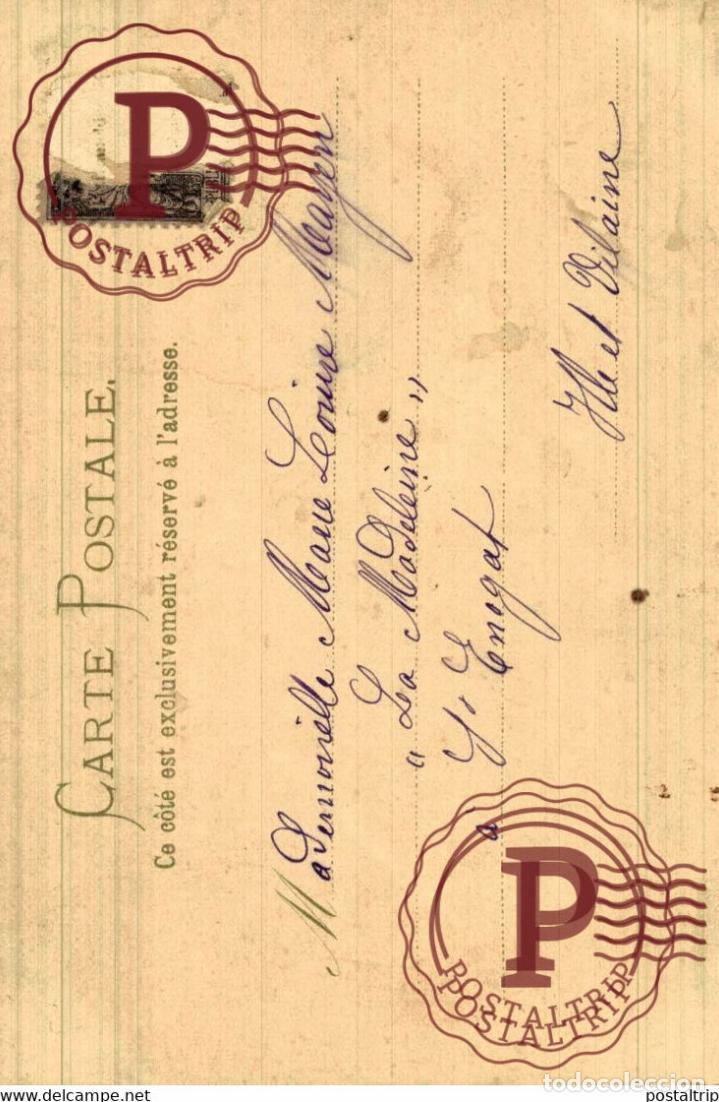 CARTE POSTALE.
Ce côté est exclusivement réservé à l'adresse.
Mademoiselle Marie Louise Mayen
"La Madeleine"
à St Enogat
Ille et Vilaine
P
POSTALTRIP
P
POSTALTRIP
POSTALTRIP
todocoleccion.net
www.delcampe.net
postaltrip